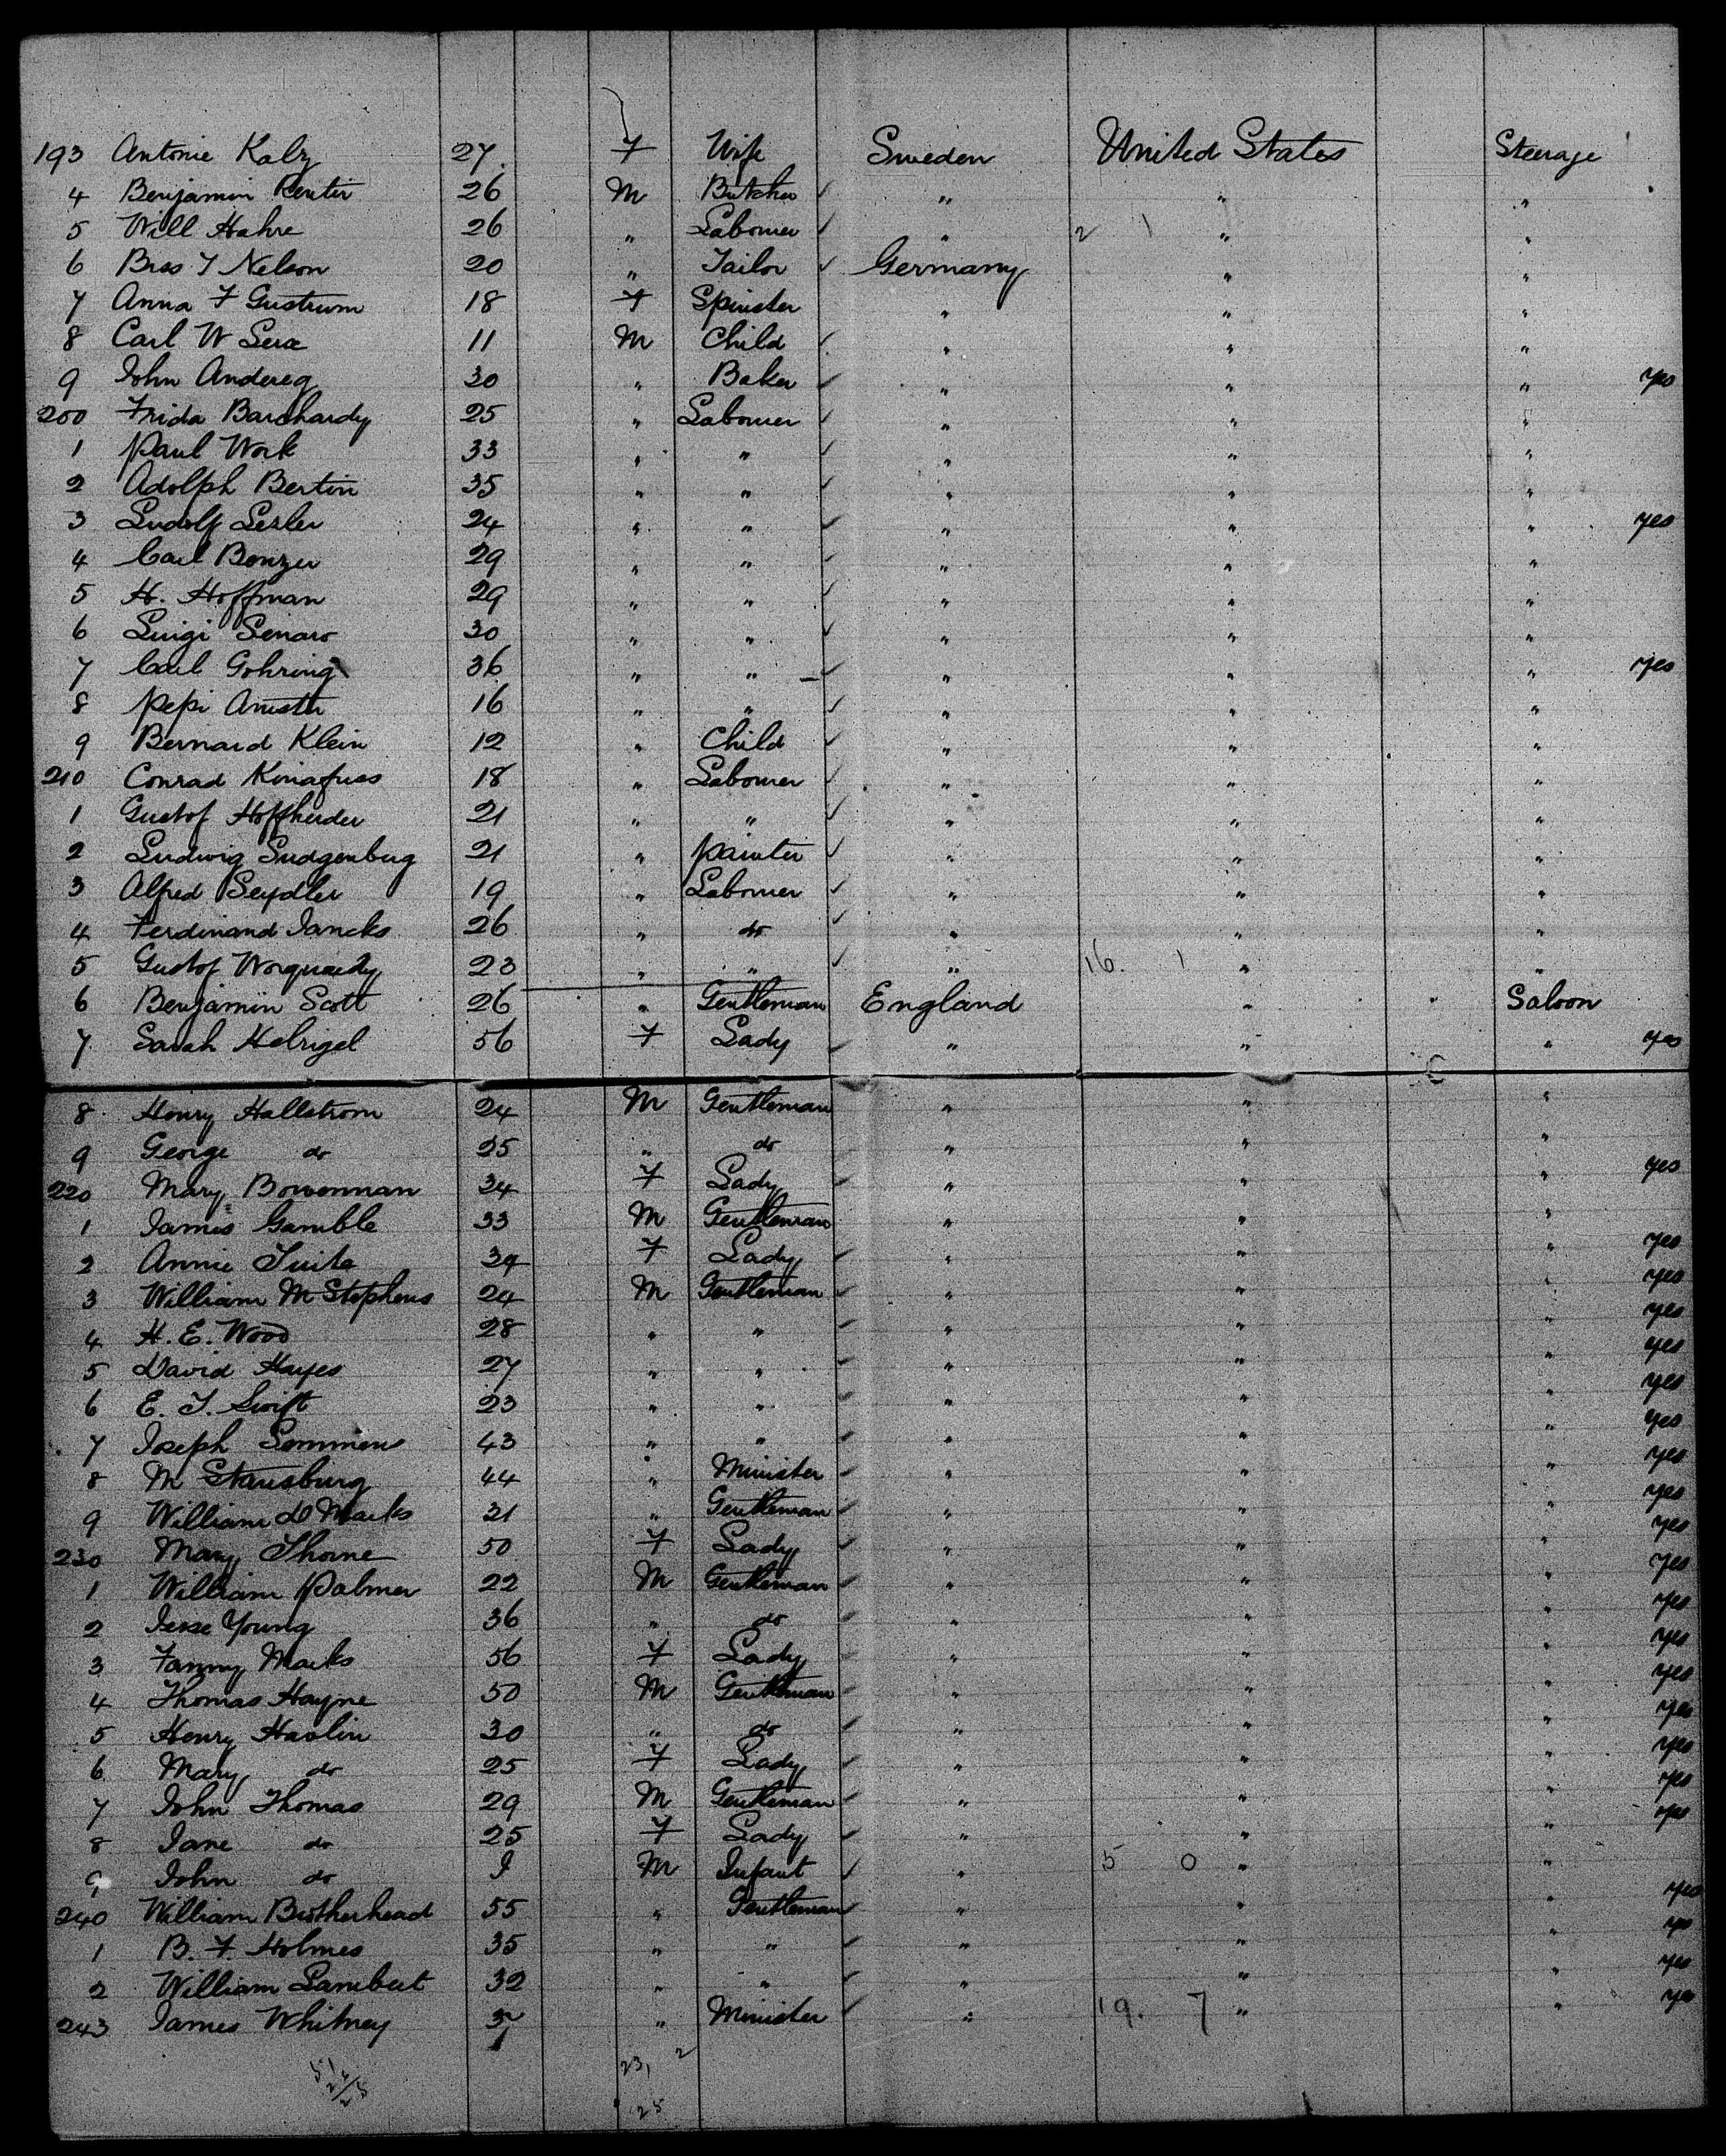 193 Antonie Kalz 27 F Wife Sweden United States Steerage
4 Benjamin Rentir 26 M Butcher " " "
5 Will Hahre 26 " Labourer " 2 1 " "
6 Bras T Nelson 20 " Tailor Germany " "
7 Anna F Gustrum 18 F Spinster " " "
8 Carl W 11 M Child " " "
9 John Andereg 30 " Baker " " " yes
200 Frida Barchardy 25 " Labourer " " "
1 Paul Work 33 " " " " "
2 Adolph Bertin 35 " " " " "
3 Ludolf Lesler 24 " " " " " yes
4 Carl Bonzer 29 " " " " "
5 H. Hoffman 29 " " " " "
6 Luigi Senaro 30 " " " " "
7 Carl Gohring 36 " " " " " yes
8 Pepi 16 " " " " "
9 Bernard Klein 12 " Child " " "
210 Conrad 18 " Labourer " " "
1 Gustof Hoffherder 21 " " " " "
2 Ludwig Sudgenburg 21 " Painter " " "
3 Alfred Seydler 19 " Labourer " " "
4 Ferdinand Jancks 26 " do " " "
5 Gustof 23 " " " 16. 1 " "
6 Benjamin Scott 26 " Gentleman England " " Saloon
7 Sarah Helrigel 56 F Lady " " " yes
8 Henry Hallstrom 24 M Gentleman " " "
9 George do 25 " do " " "
220 Mary Bowonman 34 F Lady " " " yes
1 James Gamble 33 M Gentleman " " "
2 Annie Tuite 34 F Lady " " " yes
3 William M Stephens 24 M Gentleman " " " yes
4 H. E. Wood 28 " " " " " yes
5 David Hayes 27 " " " " " yes
6 E. T. Swift 23 " " " " " yes
7 Joseph Semmens 43 " " " " " yes
8 M Stausburg 44 " Minister " " " yes
9 William D Marks 31 " Gentleman " " " yes
230 Mary Thorne 50 F Lady " " " yes
1 William Palmer 22 M Gentleman " " " yes
2 Jesse Young 36 " do " " " yes
3 Fanny Marks 56 F Lady " " " yes
4 Thomas Hayne 50 M Gentleman " " " yes
5 Henry Haslin 30 " do " " " yes
6 Mary do 25 F Lady " " " yes
7 John Thomas 29 M Gentleman " " " yes
8 Jane do 25 F Lady " " " yes
9 John do 1 M Infant " 5 0 " "
240 William Brotherhead 55 " Gentleman " " " yes
1 B. F. Holmes 35 " " " " " yes
2 William Lambert 32 " " " " " yes
243 James Whitney " Minister " 19. 7 " " yes
23, 2
25